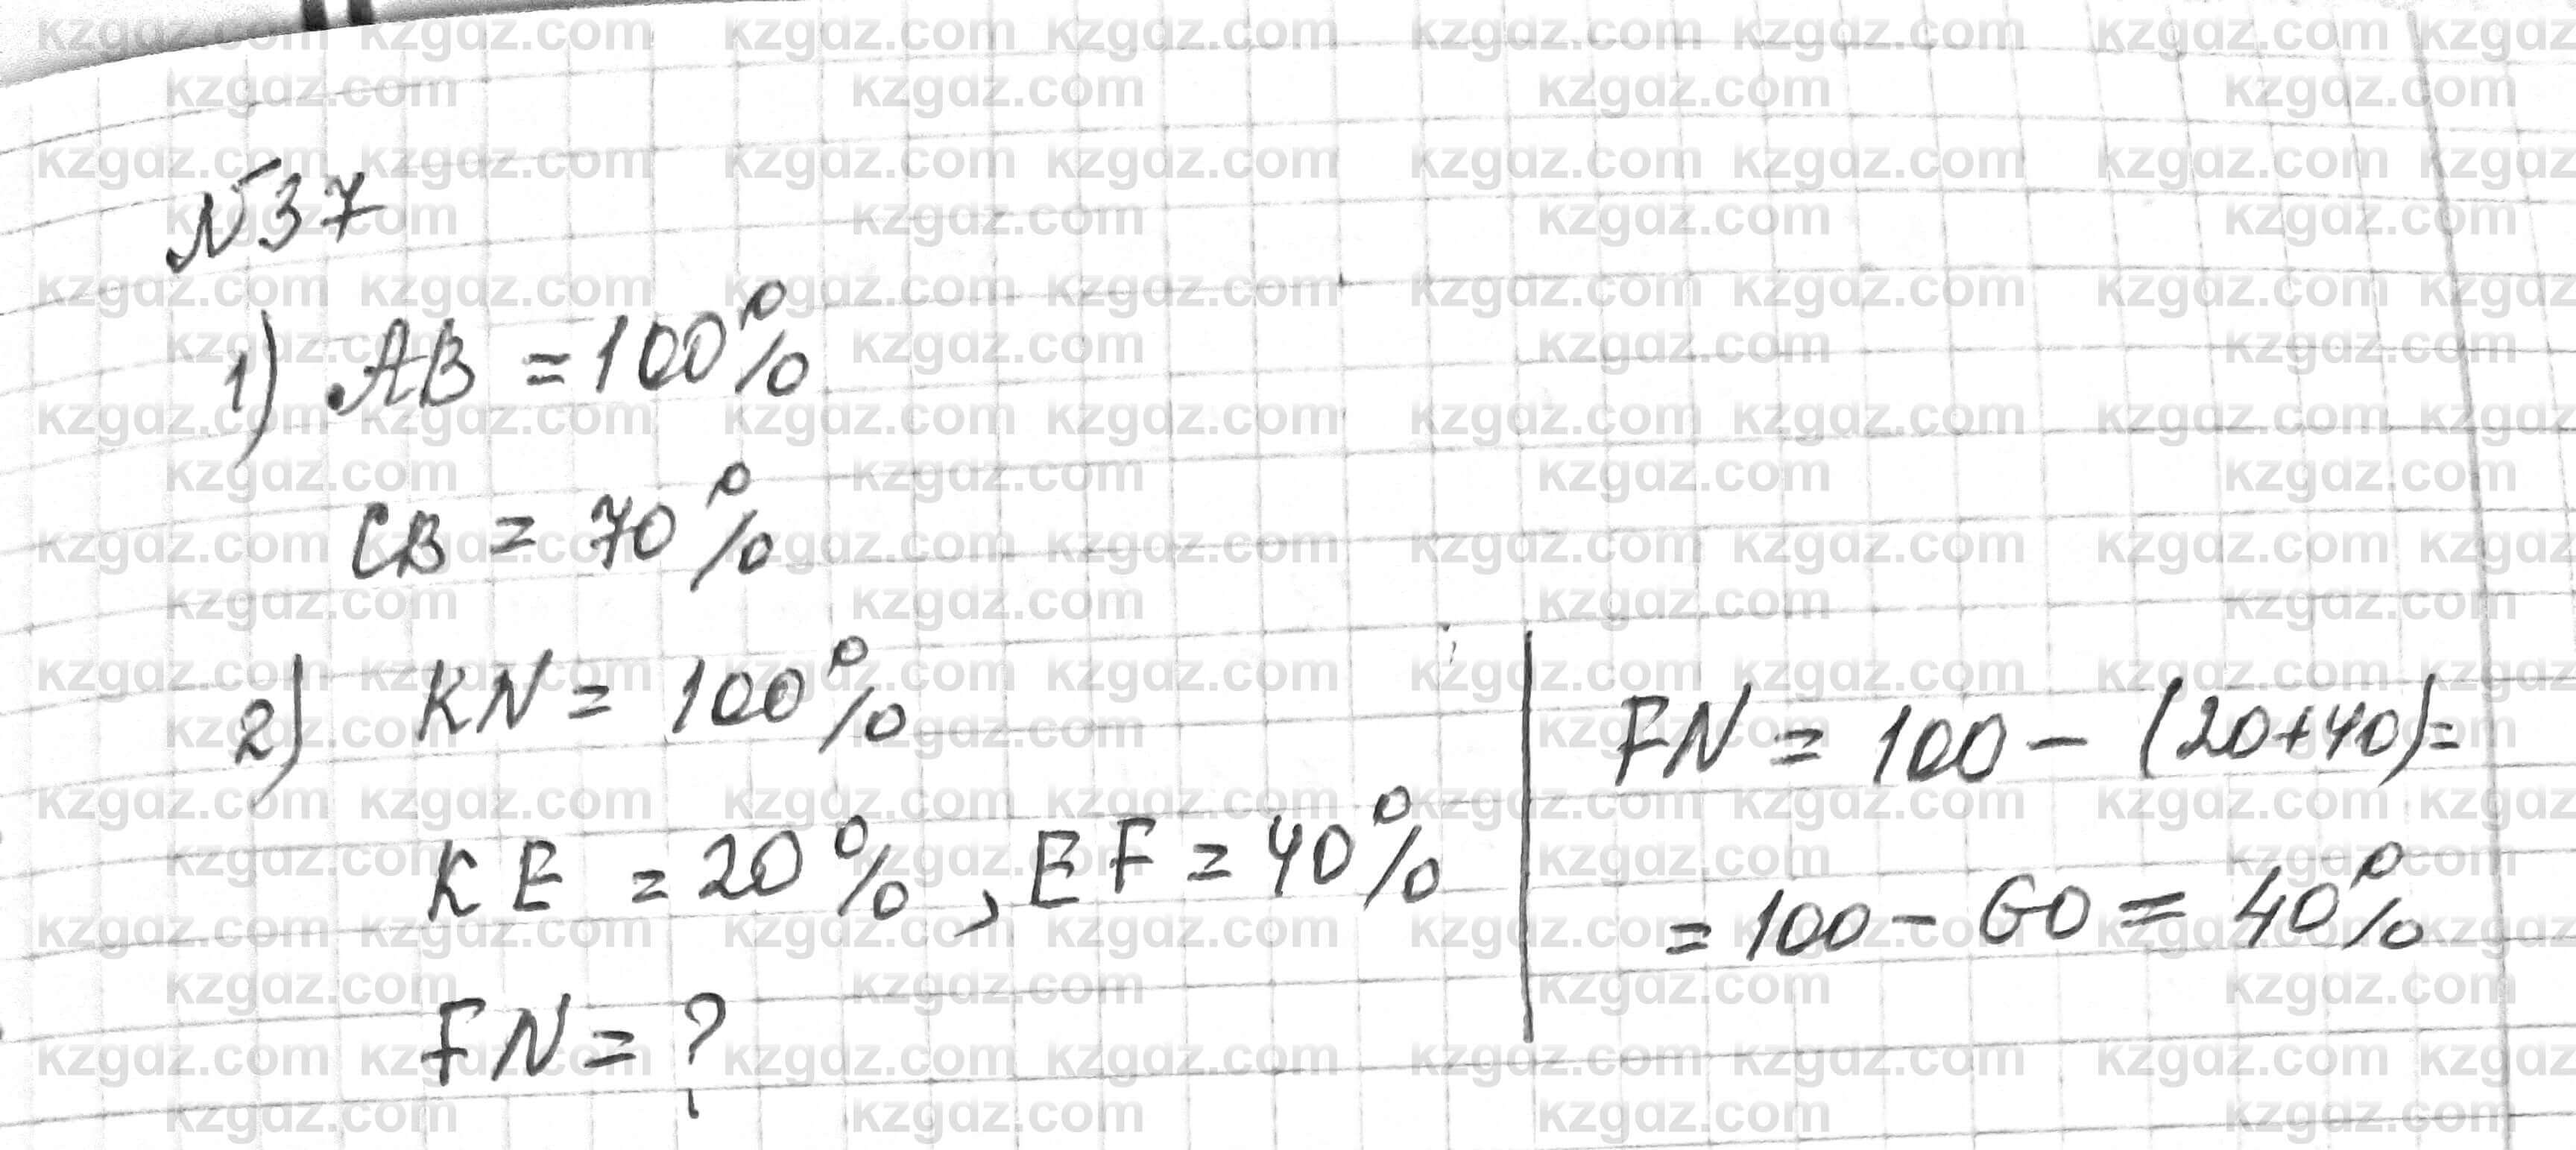 №37
1) AB = 100%
CB = 70%
2) KN = 100%
KE = 20%, EF = 40%
FN = ?
FN = 100 - (20+40) =
= 100 - 60 = 40%
kzgdz.com